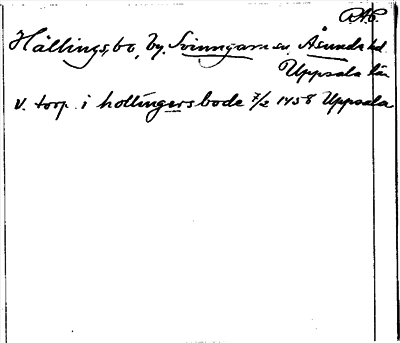 RAP.
Hällingsbo, by. Svinngarns sn. Åsunda hd.
Uppsala län
v. torp i hollingersbode 7/2 1458 Uppsala